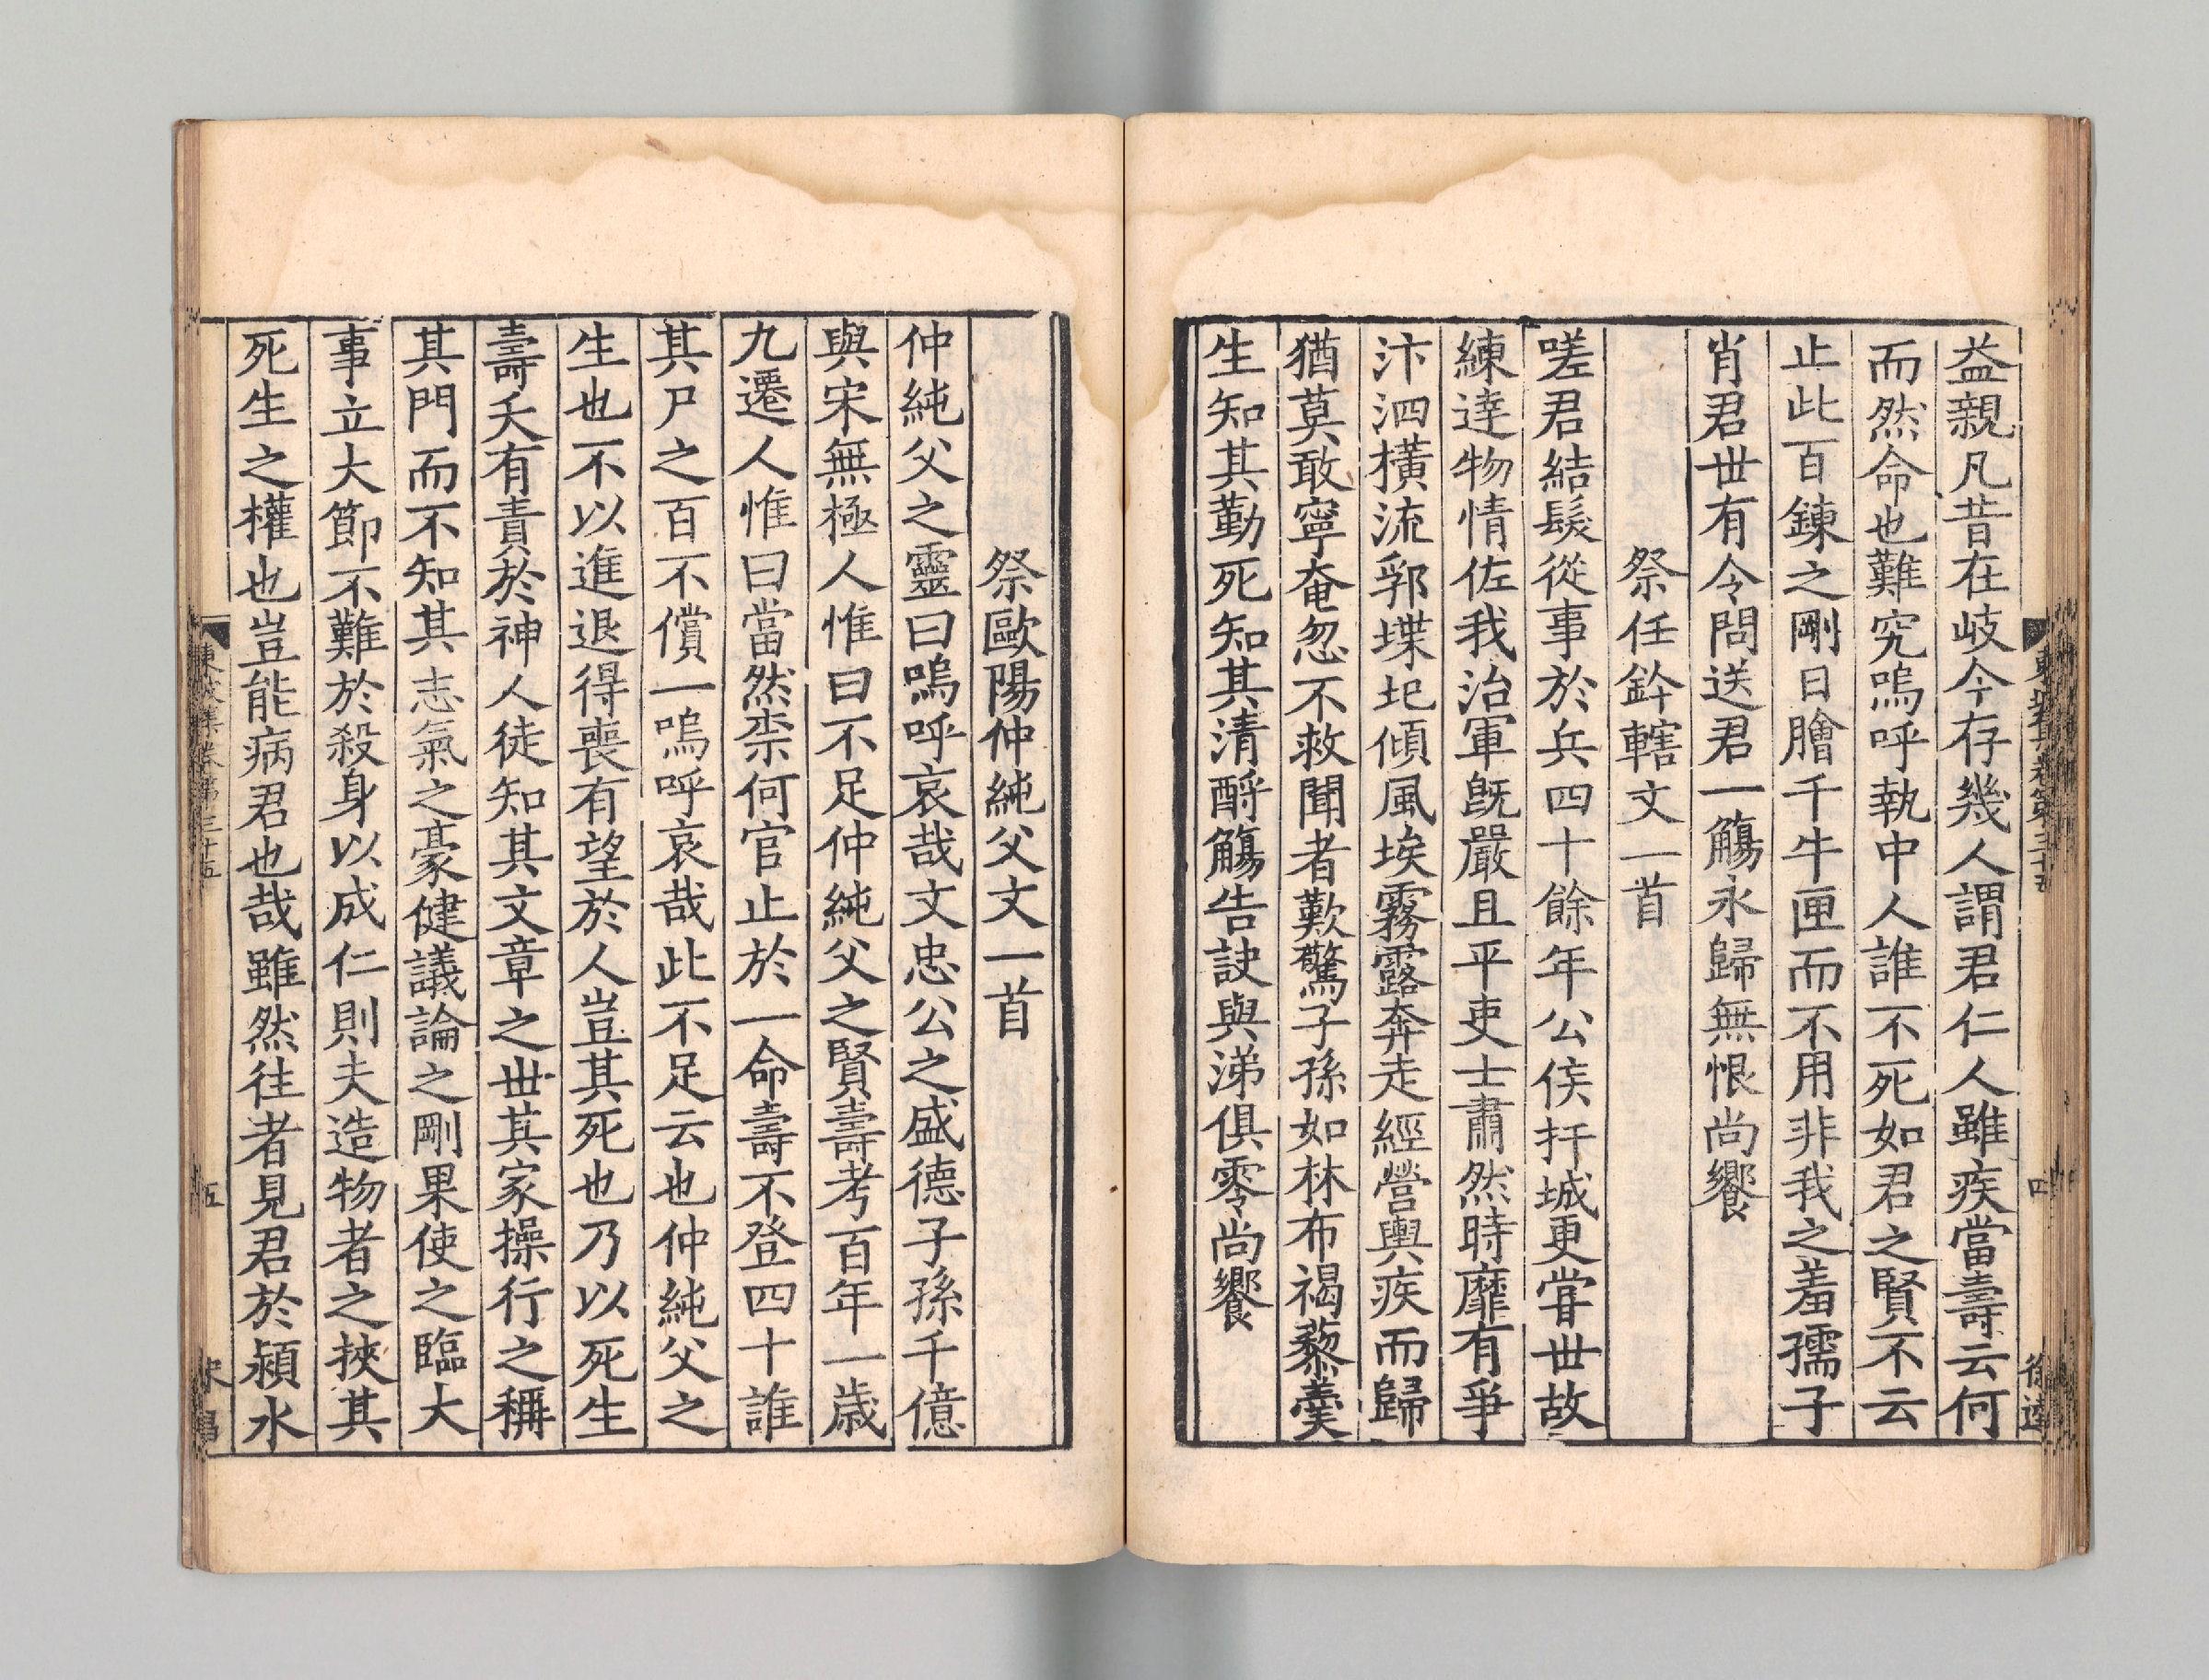 益親凡昔在岐今存幾人謂君仁人雖疾當壽云何
而然命也難究嗚呼執中人誰不死如君之賢不云
止此百鍊之剛日膾千牛匣而不用非我之羞孺子
肖君世有令問送君一觴永歸無恨尚饗
祭任鈐轄文一首
嗟君結髮從事於兵四十餘年公侯扞城更甞世故
練達物情佐我治軍旣嚴且平吏士肅然時靡有爭
汴泗橫流郛堞圮傾風埃霧露奔走經營輿疾而歸
猶莫敢寧奄忽不救聞者歎驚子孫如林布褐藜羹
生知其勤死知其清酹觴告訣與涕俱零尚饗
祭歐陽仲純父文一首
仲純父之靈曰嗚呼哀哉文忠公之盛德子孫千億
與宋無極人惟曰不足仲純父之賢壽考百年一歲
九遷人惟曰當然柰何官止於一命壽不登四十誰
其尸之百不償一嗚呼哀哉此不足云也仲純父之
生也不以進退得喪有望於人豈其死也乃以死生
壽夭有責於神人徒知其文章之世其家操行之稱
其門而不知其志氣之豪健議論之剛果使之臨大
事立大節不難於殺身以成仁則夫造物者之挾其
死生之權也豈能病君也哉雖然往者見君於潁水
東坡集卷第三十五
五
宋昌